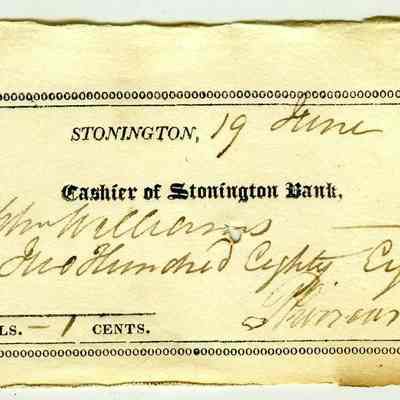 STONINGTON, 19 June
Cashier of Stonington Bank,
Williams
Two Hundred Eighty
LS. - 1 CENTS.